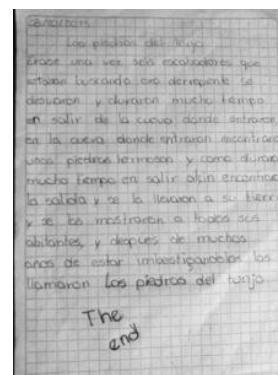 Las piedras del tunjo
Erase una vez seis escabadores que
estaban buscando oro derrepente se
desviaron y duraron mucho tiempo
en salir de la cueva donde entraron
en la cueva donde entraron encontraron
unas piedras hermosas y como duraron
mucho tiempo en salir al fin encontraron
la salida y se la llevaron a su tierra
y se las mostraron a todos sus
abitantes, y despues de muchos
anos de estar imbestigandolas las
llamaron Los piedras del tunjo.
The
end